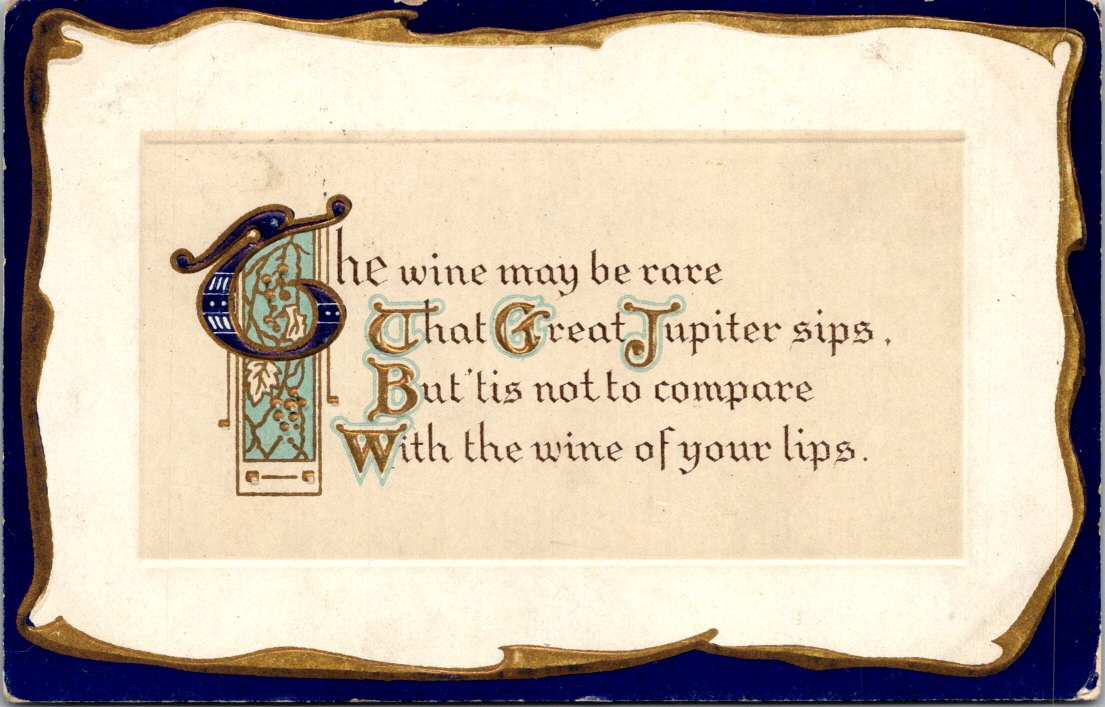 The wine may be rare
That Great Jupiter sips,
But 'tis not to compare
With the wine of your lips.